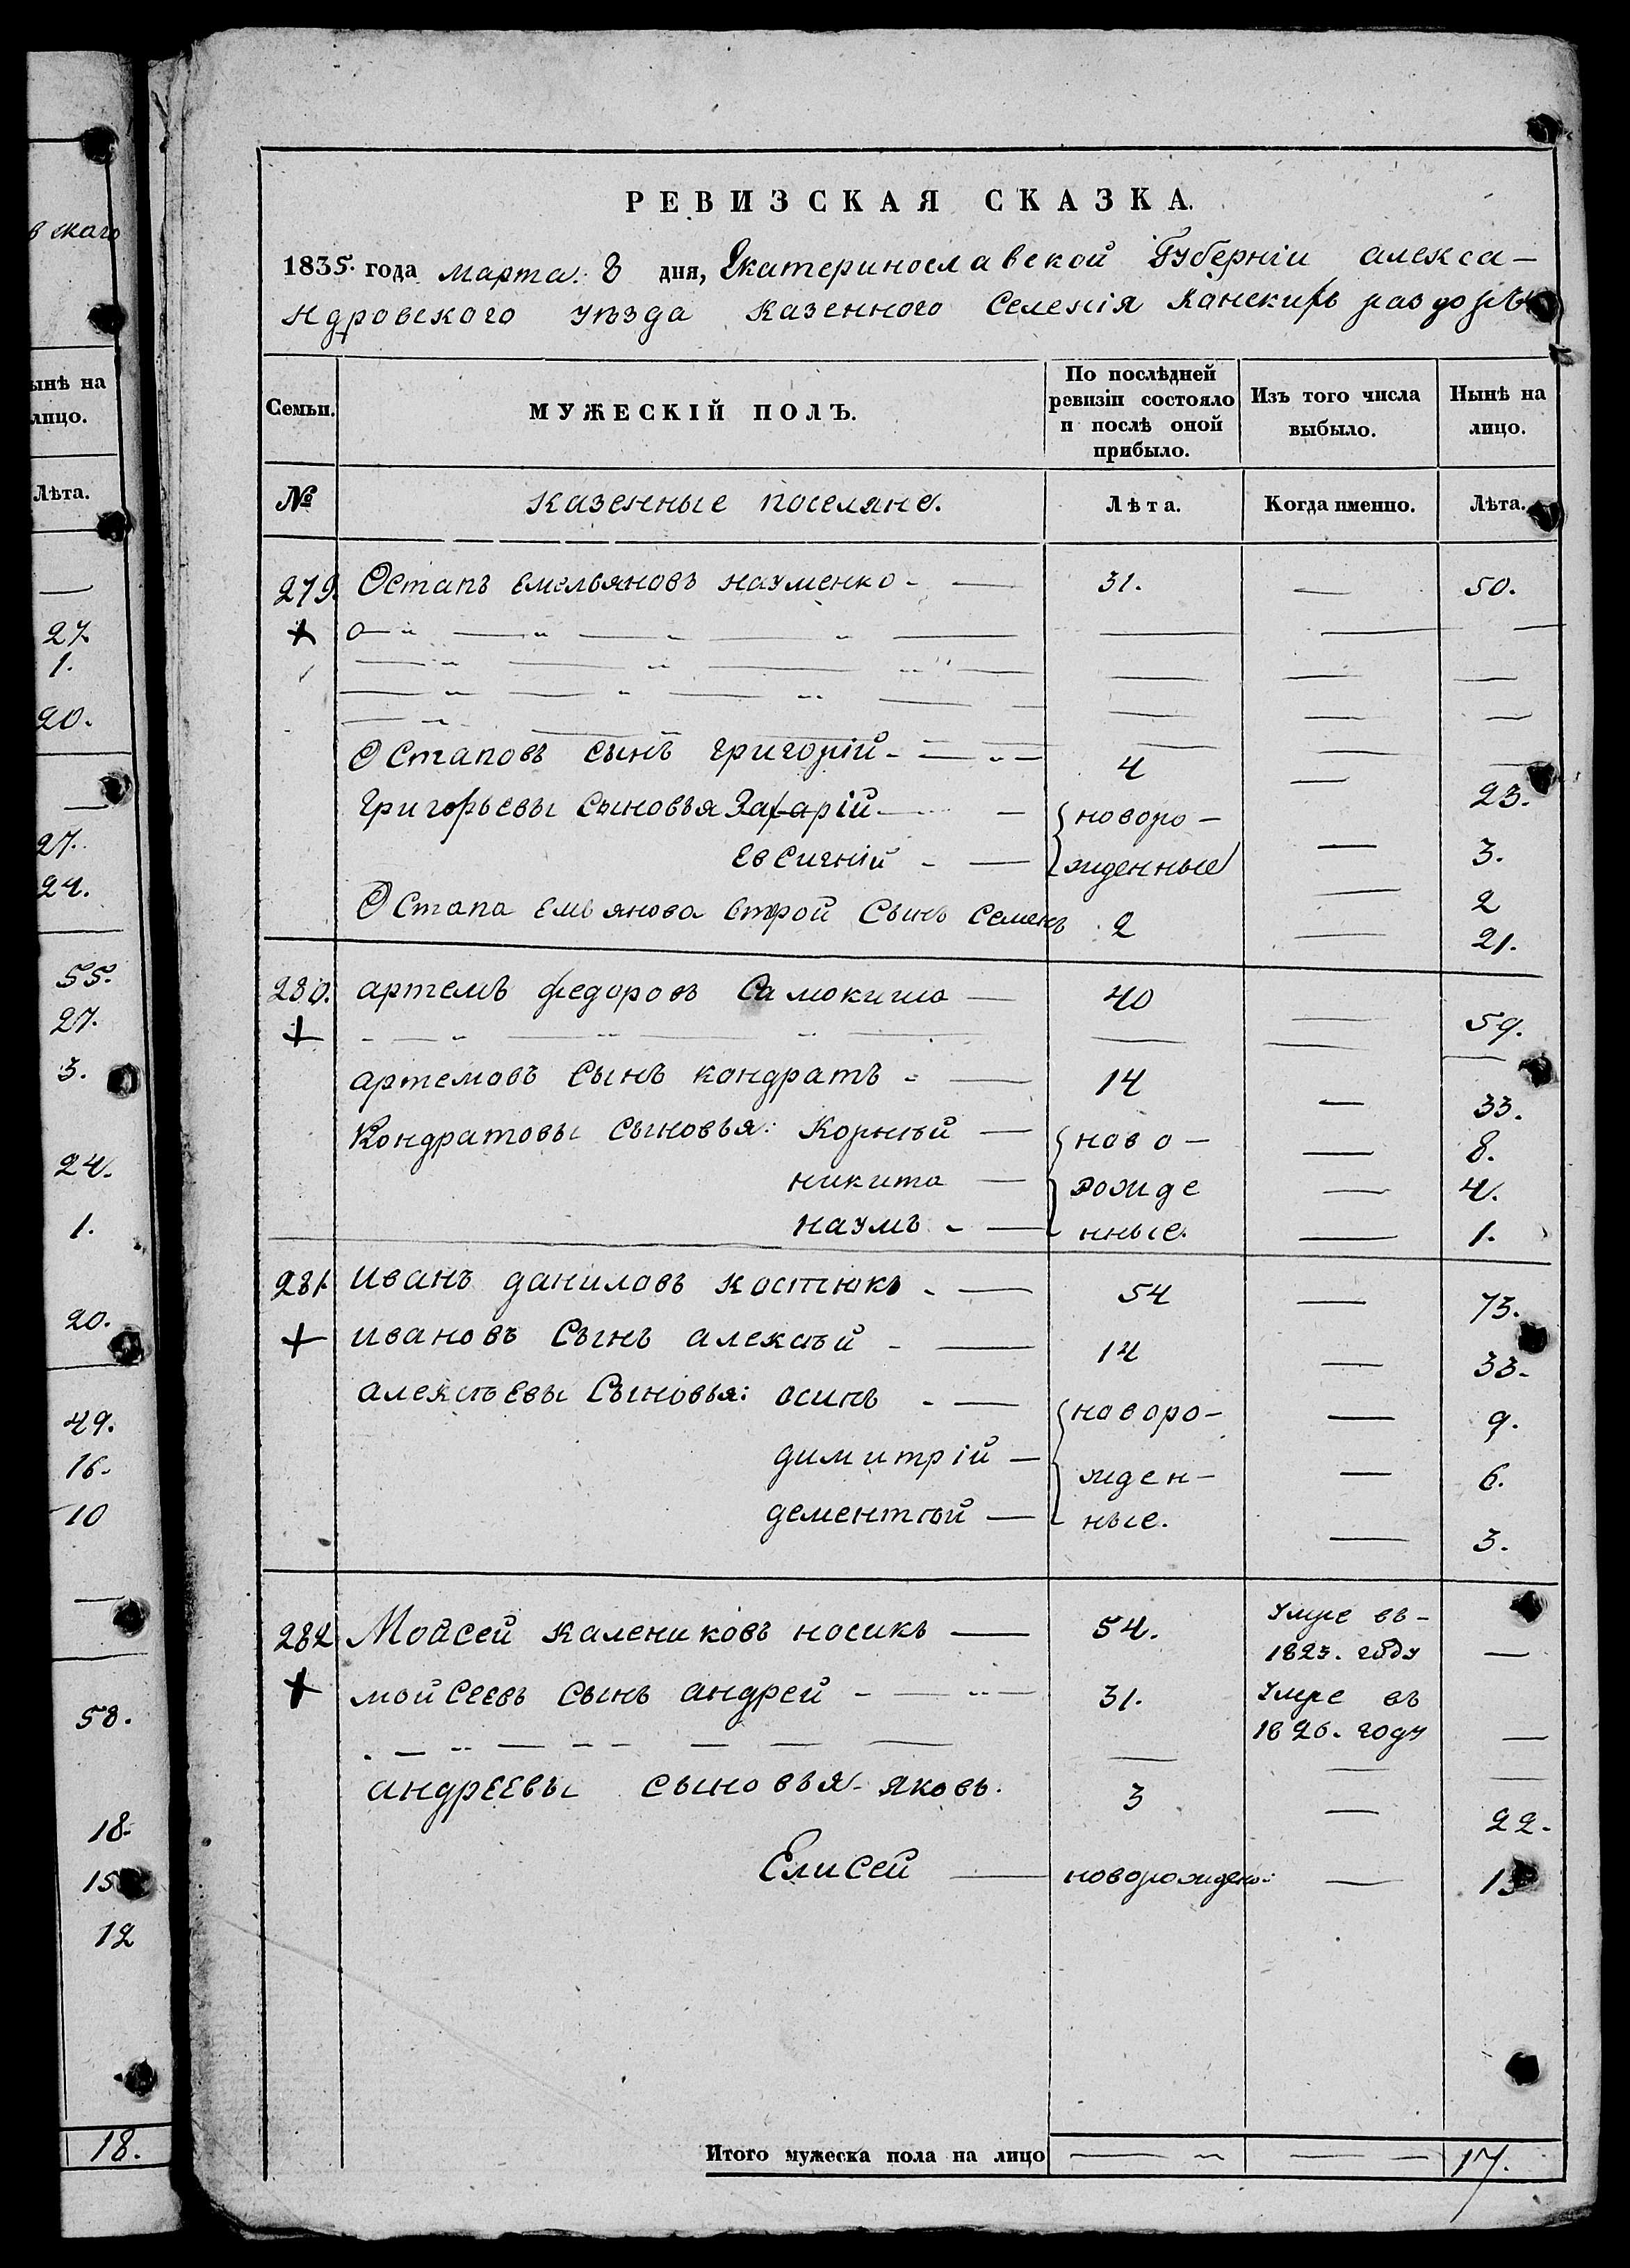 в скаго
ынѣ на
лицо.
Лѣта.
27.
1.
20.
27.
24.
55.
27.
3.
24.
1.
20.
49.
16.
10
58.
18.
15
12
18.
РЕВИЗСКАЯ СКАЗКА.
1835. года марта: 8 дня, Екатеринославской Губерніи алекса-
ндровского уѣзда Казенного Селенія Канскихъ раздоръ
Семьи. МУЖЕСКІЙ ПОЛЪ. По послѣдней ревизіи состояло и послѣ оной прибыло. Изъ того числа выбыло. Нынѣ на лицо.
№ казенные поселяне. Лѣта. Когда именно. Лѣта.
279. Остапъ Емельяновъ науменко - — 31. — 50.
Остаповъ сынъ григорій - — 4 — 23.
Григорьевы сыновья Захарій — { новоро- — 3.
Евсигній - — жденные — 2
Остапа Емьянова втрой Сынъ Семенъ 2 — 21.
280. артемъ федоровъ Самокиша — 40 — 59.
артемовъ Сынъ кондратъ - — 14 — 33.
Кондратовы сыновья: Корнѣй — { ново- — 8.
никита — рожде — 4.
наумъ - — нные. — 1.
281. Иванъ даниловъ костюкъ - — 54 — 73.
ивановъ Сынъ алексѣй - — 14 — 33.
алексѣевы Сыновья: осипъ - — { новоро- — 9.
димитрій — жден- — 6.
дементѣй — ные. — 3.
282 Мойсей калениковъ носикъ — 54. Умре въ- 1823. году —
мойсеевъ сынъ андрей - — 31. Умре въ 1826. году —
андреевы сыновья - яковъ. 3 — 22.
Елисей — новорожден: — 13
Итого мужеска пола на лицо — — 17.